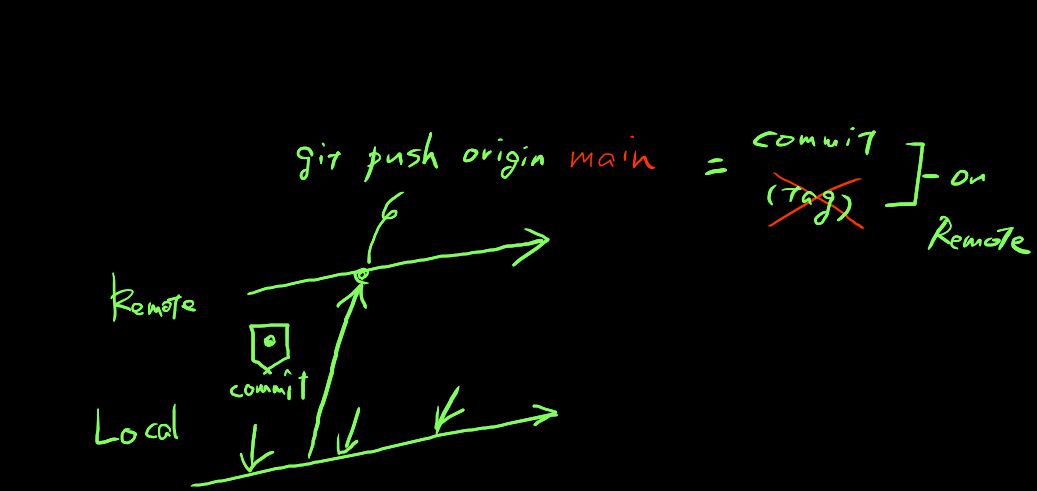 git push origin main = commit
(Tag)
on
Remote
Remote
commit
Local